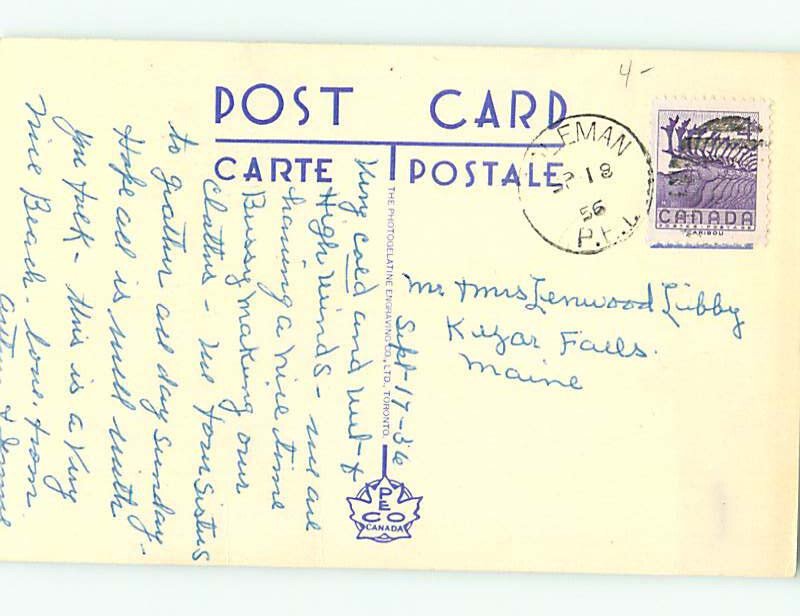 4-
POST CARD
CARTE POSTALE
LEMAN
18
56
P.E.I.
CANADA
POSTES POSTAGE
CARIBOU
THE PHOTOGELATINE ENGRAVING CO., LTD., TORONTO.
PECO
CANADA
Mr + Mrs Lenwood Libby
Kezar Falls.
Maine
Sept-17-56
Very cold and wet - &
High winds - we are
having a nice time
Bussy making our
Clothes - we four Sisters
to gether all day Sunday -
Hope all is well with
you folk - this is a Very
nice Beach - love. from